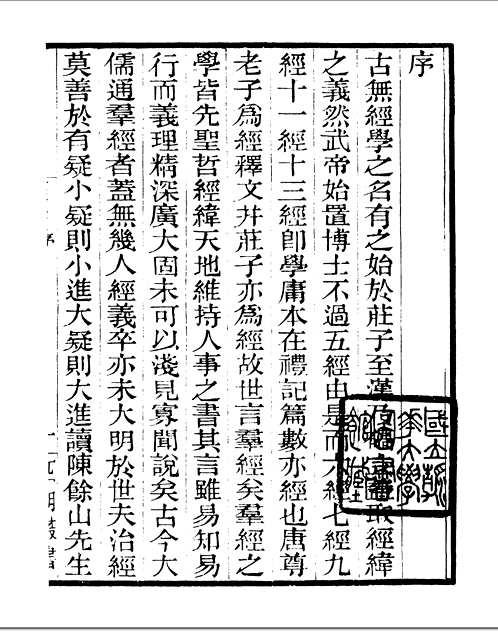 序
古無經學之名有之始於莊子至漢取經緯
之義然武帝始置博士不過五經由是而六經七經九
經十一經十三經卽學庸本在禮記篇數亦經也唐尊
老子爲經釋文幷莊子亦爲經故世言羣經矣羣經之
學皆先聖哲經緯天地維持人事之書其言雖易知易
行而義理精深廣大固未可以淺見寡聞說矣古今大
儒通羣經者蓋無幾人經義卒亦未大明於世夫治經
莫善於有疑小疑則小進大疑則大進讀陳餘山先生
序
明叢書